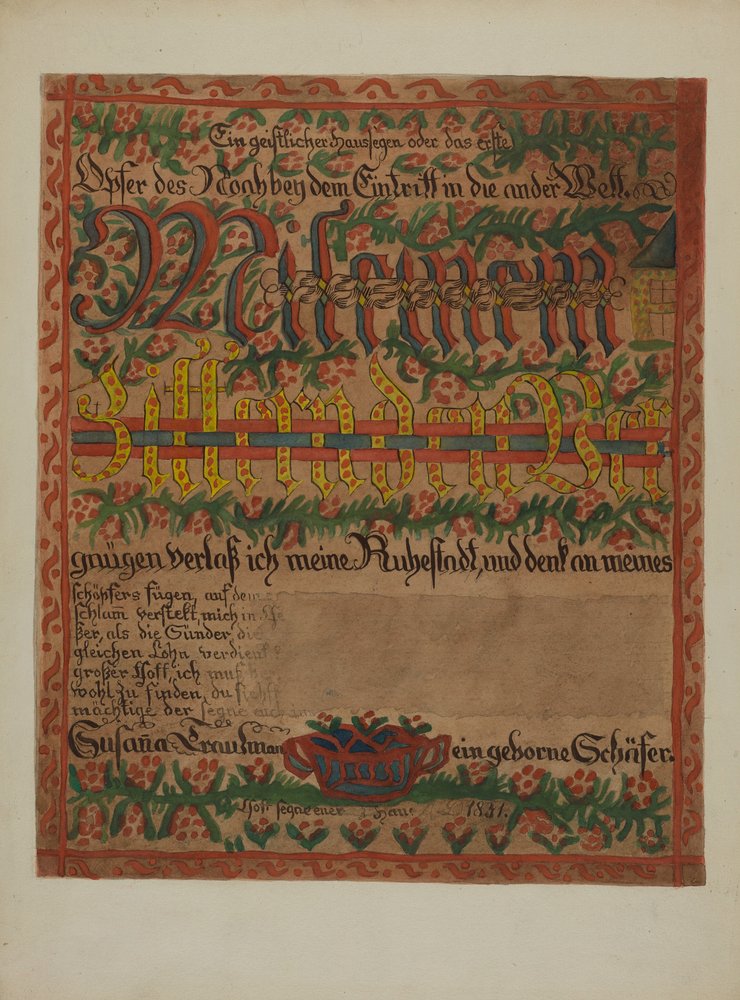 Ein geistlicher Haussegen oder das erste
Opfer des Noah bey dem Eintritt in die ander Welt.
Mit einem
Zitternden Ver
gnügen verlaß ich meine Ruhestadt, und denk an meines
schöpfers fügen, auf dem
schlam̄ verstelt, mich in
ßer, als die Sünder, die
gleichen Lohn verdien
großer Gott, ich muß
wohl zu finden, du siehst
mächtige der segne euch
Susan̄a Trautman ein geborne Schäfer.
Gott segne ener Haus AD 1831.